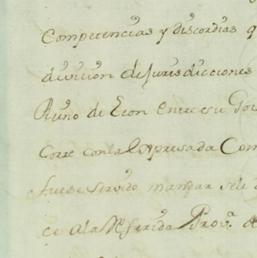 Competencias y discordias q
division de Jurisdicciones
Reino de Leon entre su Gov
Corre con la Expresada Com
fuese servido mandar sele
ce a la Referida Prov.ª de